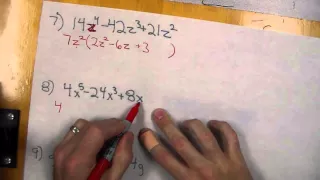 7) 14z⁴-42z³+21z²
7z²(2z²-6z+3 )
8) 4x⁵-24x³+8x
4
9)